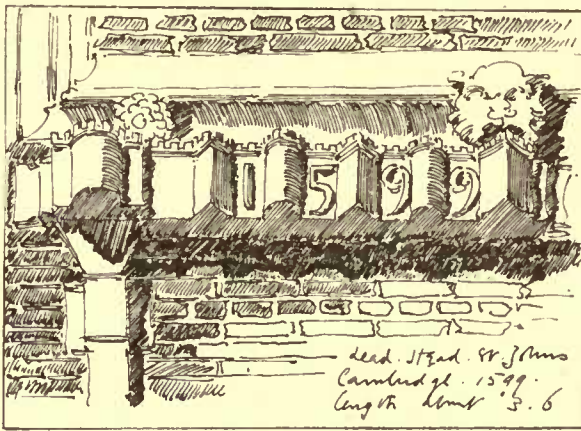 1599
lead. Head. St. Johns
Cambridge. 1599.
length about 3.6